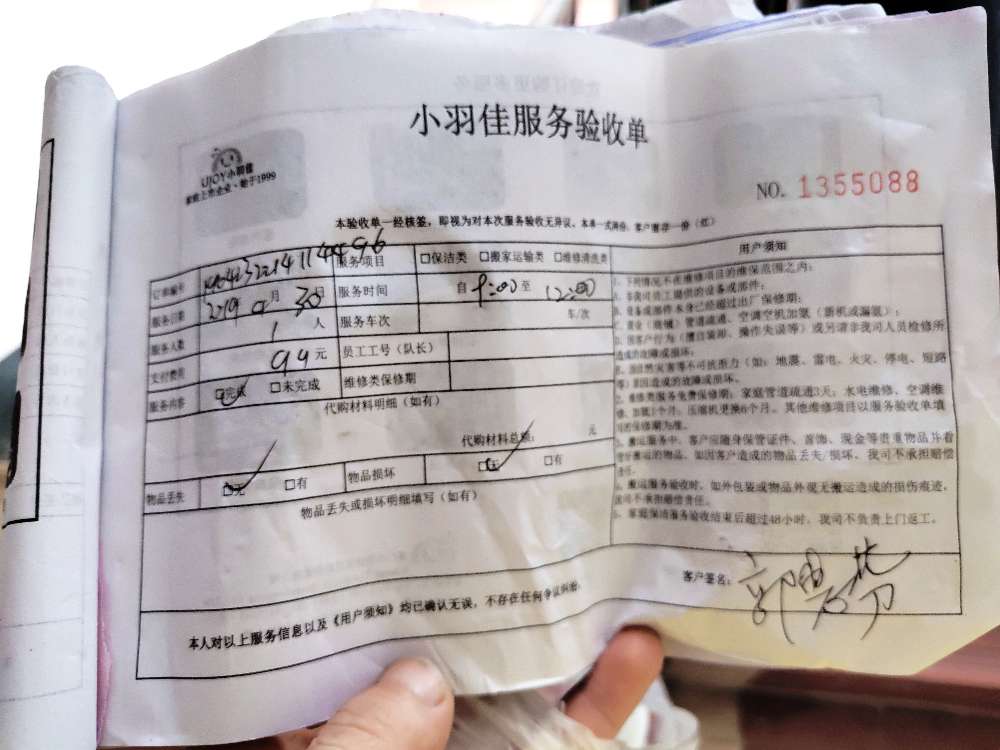 小羽佳服务验收单
UJOY小羽佳
家政上市企业·始于1999
NO. 1355088
本验收单一经核签，即视为对本次服务验收无异议。本单一式两份，客户留存一份（红）
订单编号
服务项目 □保洁类 □搬家运输类 □维修清洗类
服务日期 月 30日 服务时间 自 9:00 至 12:00
服务人数 1 人 服务车次 车/次
支付费用 99 元 员工工号（队长）
服务内容 □完成 □未完成 维修类保修期
代购材料明细（如有）
代购材料总额： 元
物品丢失 □无 □有 物品损坏 □无 □有
物品丢失或损坏明细填写（如有）
用户须知
1、下列情况不在维修项目的维保范围之内：
a、非我司员工提供的设备或部件；
b、设备或部件本身已经超过出厂保修期；
管道疏通、空调空机加氨（新机或漏氨）；
客户行为（擅自装卸、操作失误等）或另请非我司人员检修所
造成的故障或损坏。
自然灾害等不可抗力（如：地震、雷电、火灾、停电、短路
等）原因造成的故障或损坏。
2、维修类服务免费保修期：家庭管道疏通3天；水电维修、空调维
修、加氨1个月；压缩机更换6个月。其他维修项目以服务验收单填
写的保修期为准。
3、搬运服务中，客户应随身保管证件、首饰、现金等贵重物品并看
管好搬运的物品，如因客户造成的物品丢失/损坏，我司不承担赔偿
责任。
4、搬运服务验收时，如外包装或物品外观无搬运造成的损伤痕迹，
我司不承担赔偿责任。
5、家庭保洁服务验收结束后超过48小时，我司不负责上门返工。
本人对以上服务信息以及《用户须知》均已确认无误，不存在任何争议纠纷。
客户签名：